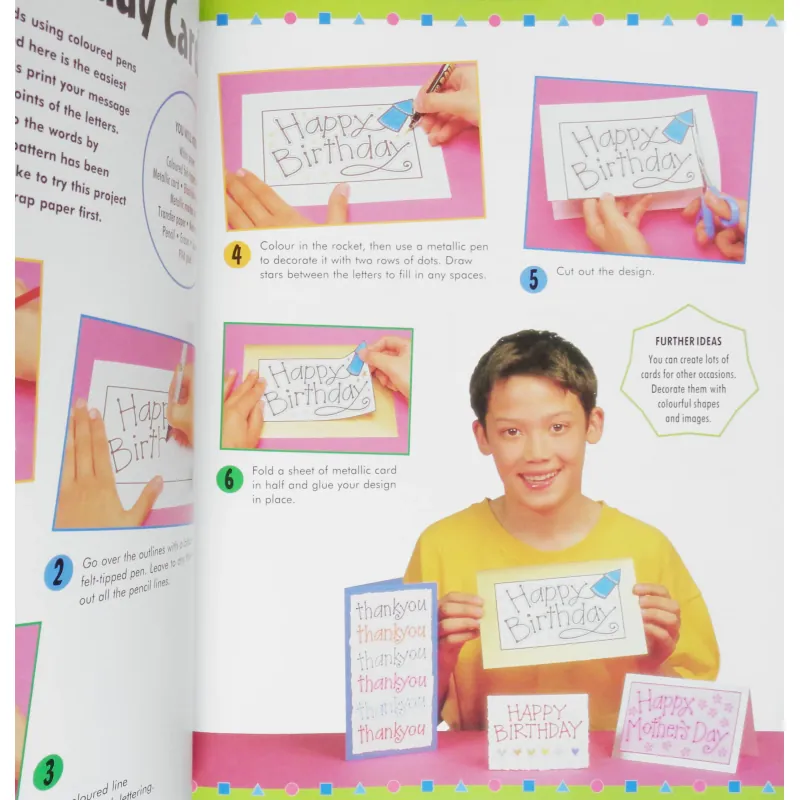 ndy Card
ds using coloured pens
d here is the easiest
s print your message
oints of the letters.
o the words by
pattern has been
ke to try this project
rap paper first.
Happy
Birthday
4
Colour in the rocket, then use a metallic pen
to decorate it with two rows of dots. Draw
stars between the letters to fill in any spaces.
Happy
Birthday
5
Cut out the design.
Happ
Birth
2
Go over the outlines with a
felt-tipped pen. Leave to
out all the pencil lines.
3
oloured line
lettering.
Happy
Birthday
6
Fold a sheet of metallic card
in half and glue your design
in place.
FURTHER IDEAS
You can create lots of
cards for other occasions.
Decorate them with
colourful shapes
and images.
Happy
Birthday
thankyou
thankyou
thankyou
thankyou
thankyou
thankyou
HAPPY
BIRTHDAY
Happy
Mother's Day